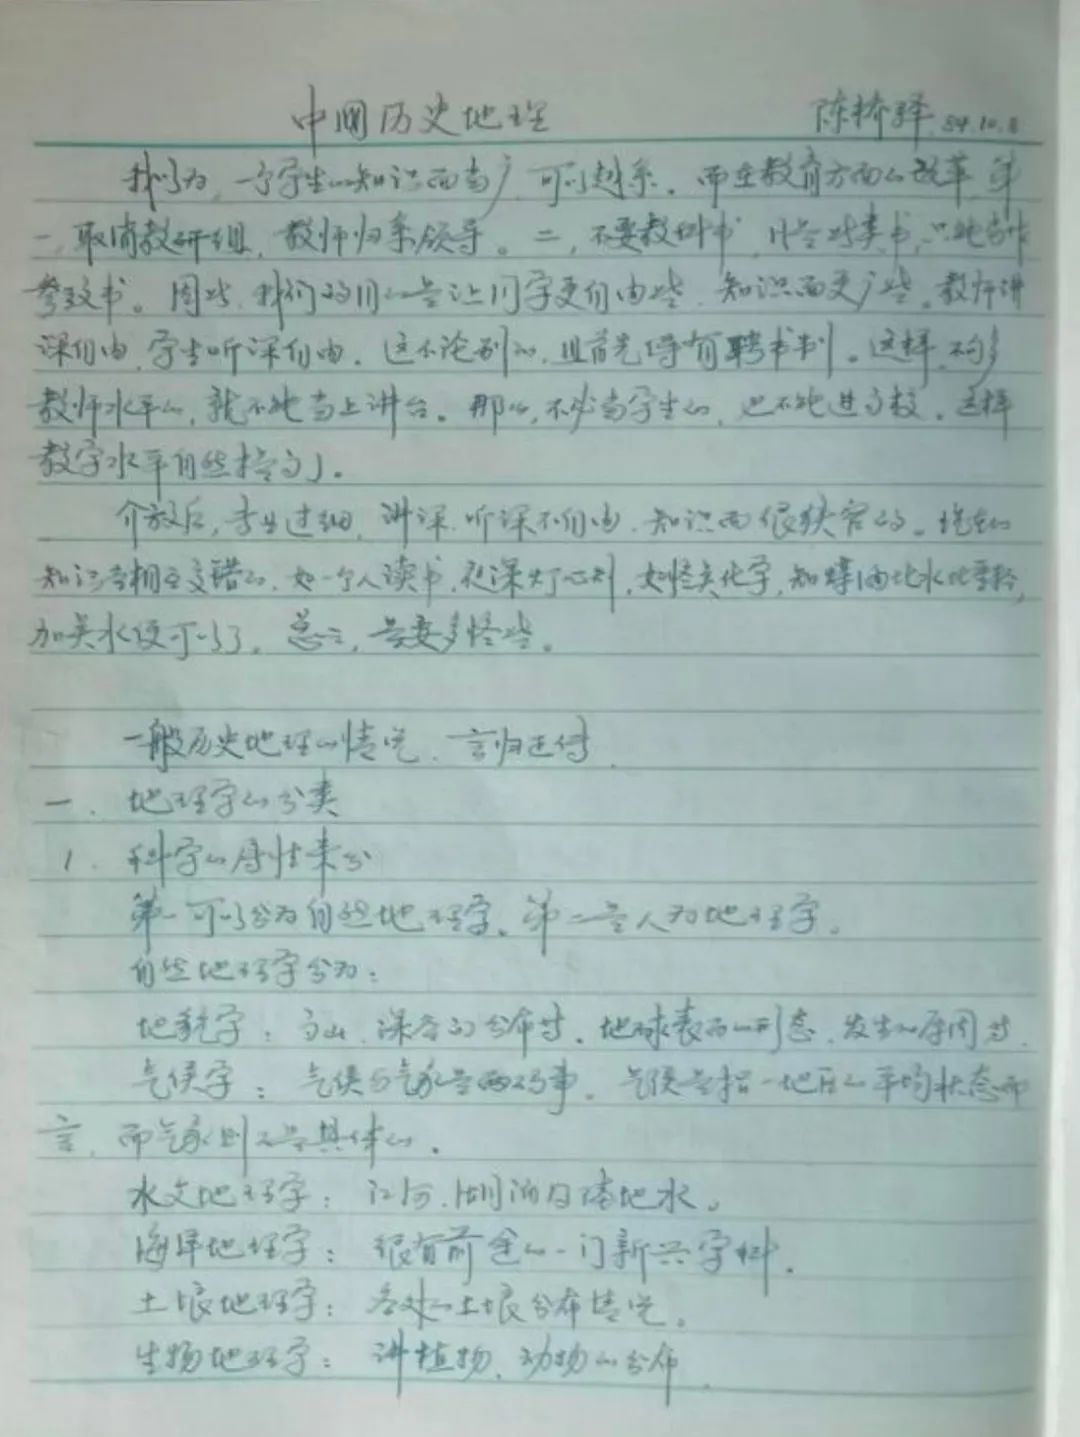 中国历史地理 陈桥驿 84.10.8
我以为,一个学生的知识面当广,可以越系。而在教育方面的改革,第
一,取消教研组,教师归系领导。二,不要教科书,凡是此类书,只能当作
参考书。因此,我们的目的是让同学更自由些,知识面更广些。教师讲
课自由,学生听课自由,这不论别的,且首先得有聘书制。这样,不够
教师水平的,就不能当上讲台。那么,不必当学生的,也不能进高校。这样
教学水平自然提高了。
介放后,专业过细,讲课、听课不自由,知识面很狭窄的。现在的
知识是相互交错的,如一个人读书,夜深灯心,如懂点化学,知煤油比水比重轻,
加点水便可以了。总之,是要多怪些。
一般历史地理的情况,言归正传
一、地理学的分类
1. 科学的属性来分
第一可以分为自然地理学,第二是人为地理学。
自然地理学分为:
地貌学:高山、深谷的分布等,地球表面的形态,发生的原因等
气候学:气候与气象是两码事。气候是指一地区的平均状态而
言,而气象则是具体的。
水文地理学:江河、湖泊及陆地水。
海洋地理学:很有前途的一门新兴学科。
土壤地理学:各处的土壤分布情况。
生物地理学:讲植物、动物的分布